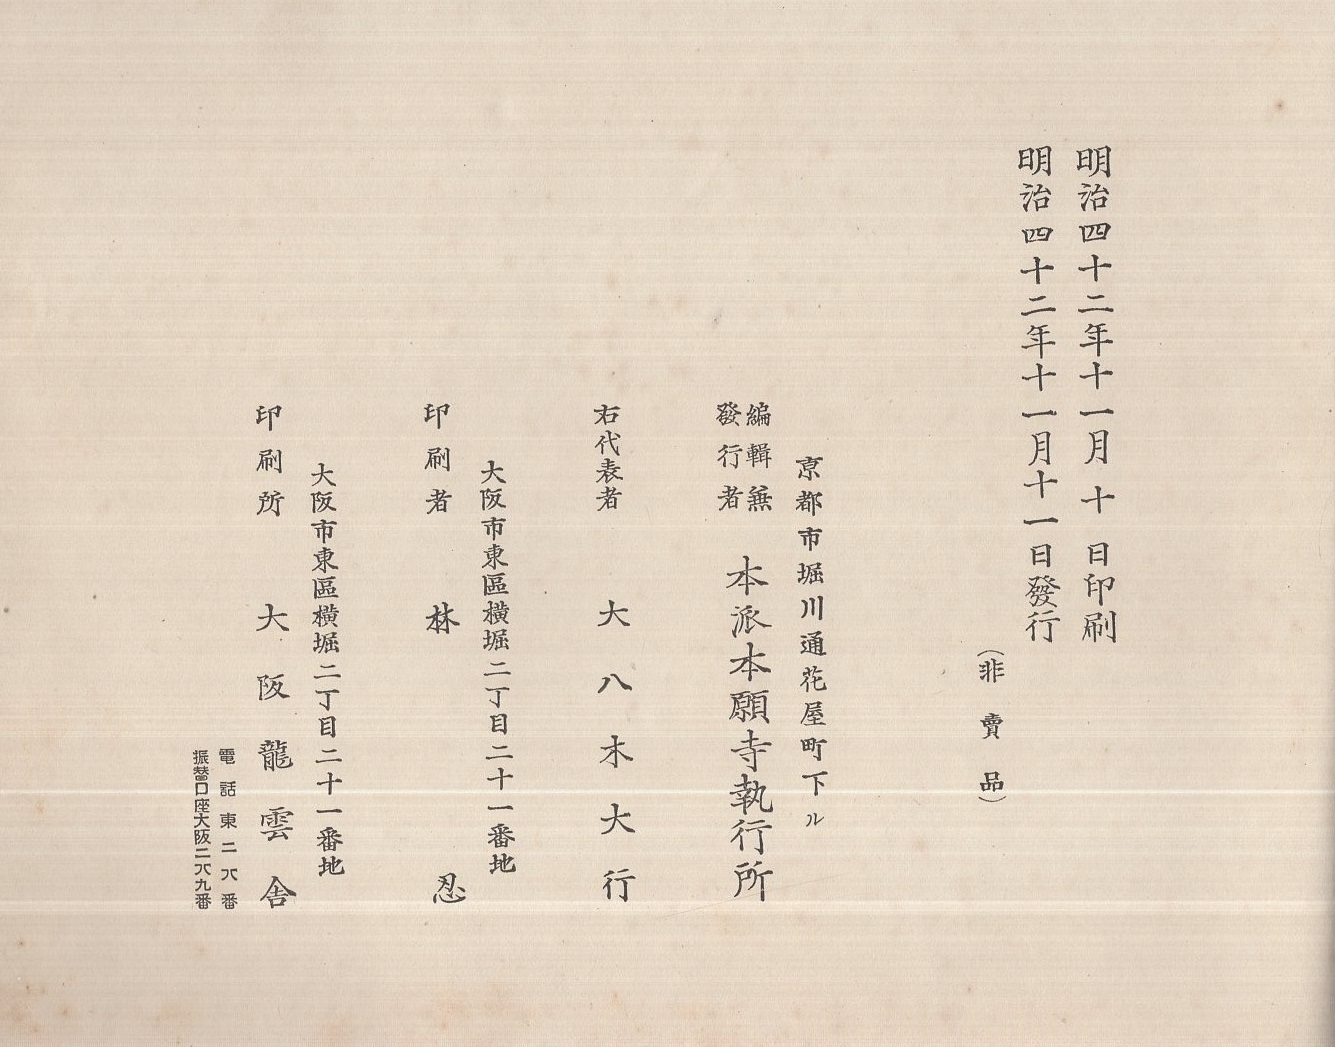 明治四十二年十一月十日印刷
明治四十二年十一月十一日發行
（非賣品）
京都市堀川通花屋町下ル
編輯兼
發行者
本派本願寺執行所
右代表者 大八木大行
大阪市東區横堀二丁目二十一番地
印刷者 林忍
大阪市東區横堀二丁目二十一番地
印刷所 大阪龍雲舎
電話東二六番
振替口座大阪二六九番